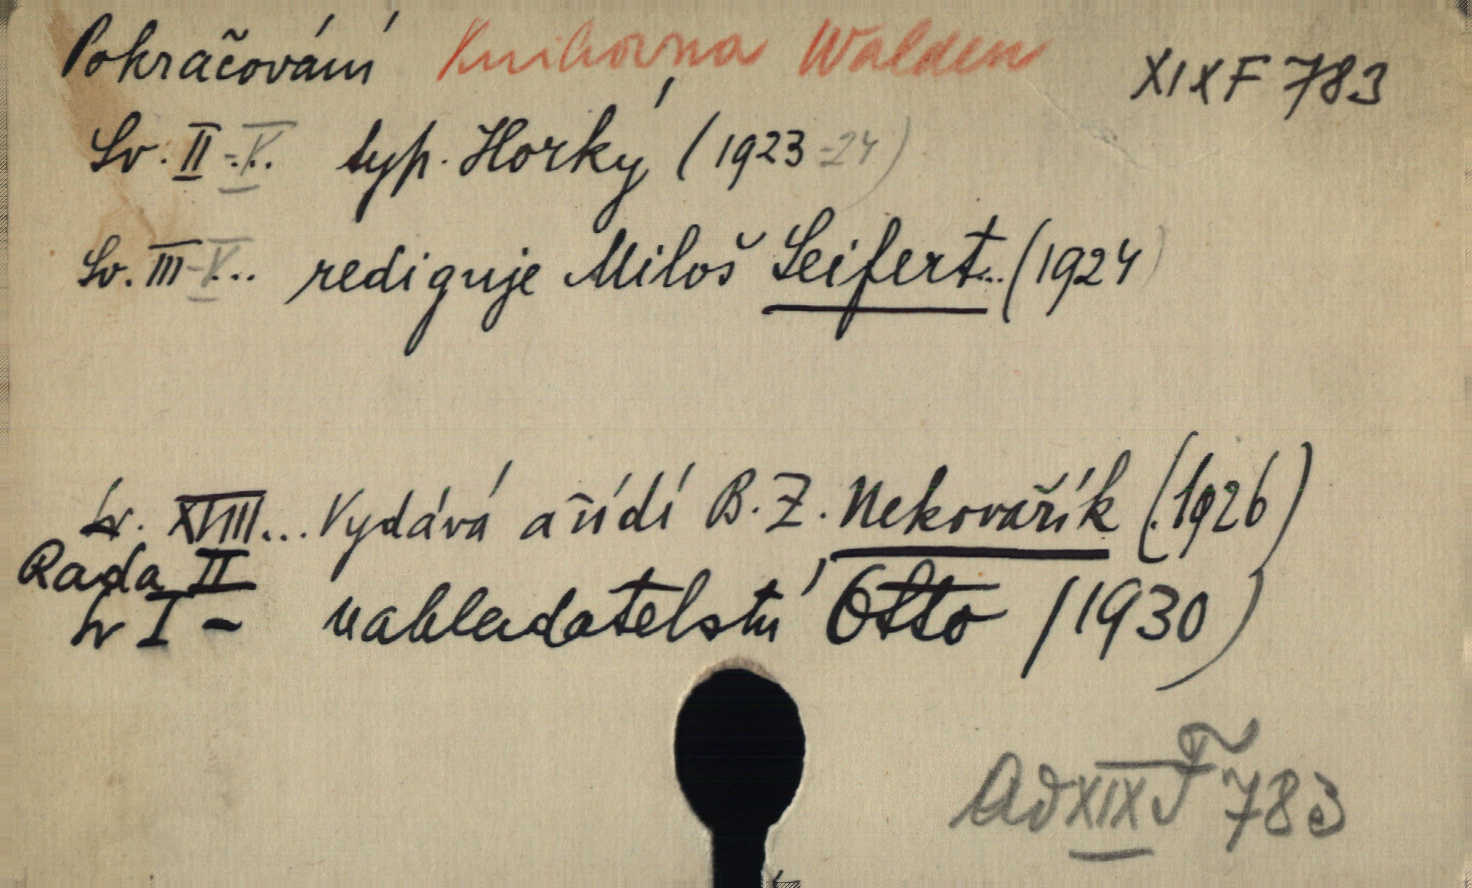 Pokračování Knihovna Walden XIX F 783
Sv. II-V... typ. Horký (1923-24)
Sv. III-V... rediguje Miloš Seifert... (1924)
Sv. XVIII... Vydává a řídí B. Z. Nekovařík (1926)
Řada II
Sv I - nakladatelství Otto (1930)
Ad XIX F 783